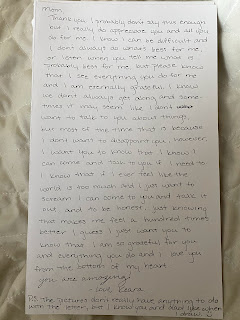 Mom,
Thank you. I probably don't say this enough
but I really do appreciate you and all you
do for me. I know I can be difficult and
I don't always do what's best for me,
or listen when you tell me what is
probably best for me but please know
that I see everything you do for me
and I am eternally grateful. I know
we don't always get along and some-
times it may seem like I don't
want to talk to you about things,
but most of the time that is because
I don't want to disappoint you. However,
I want you to know that I know I
can come and talk to you if I need to
I know that if I ever feel like the
world is too much and I just want to
scream I can come to you and talk it
out and to be honest, just knowing
that makes me feel a hundred times
better. I guess I just want you to
know that I am so grateful for you
and everything you do and I love you
from the bottom of my heart
you are amazing!
- Love Keara
P.S. The pictures don't really have anything to do
with the letter, but I know you and dad love when
I